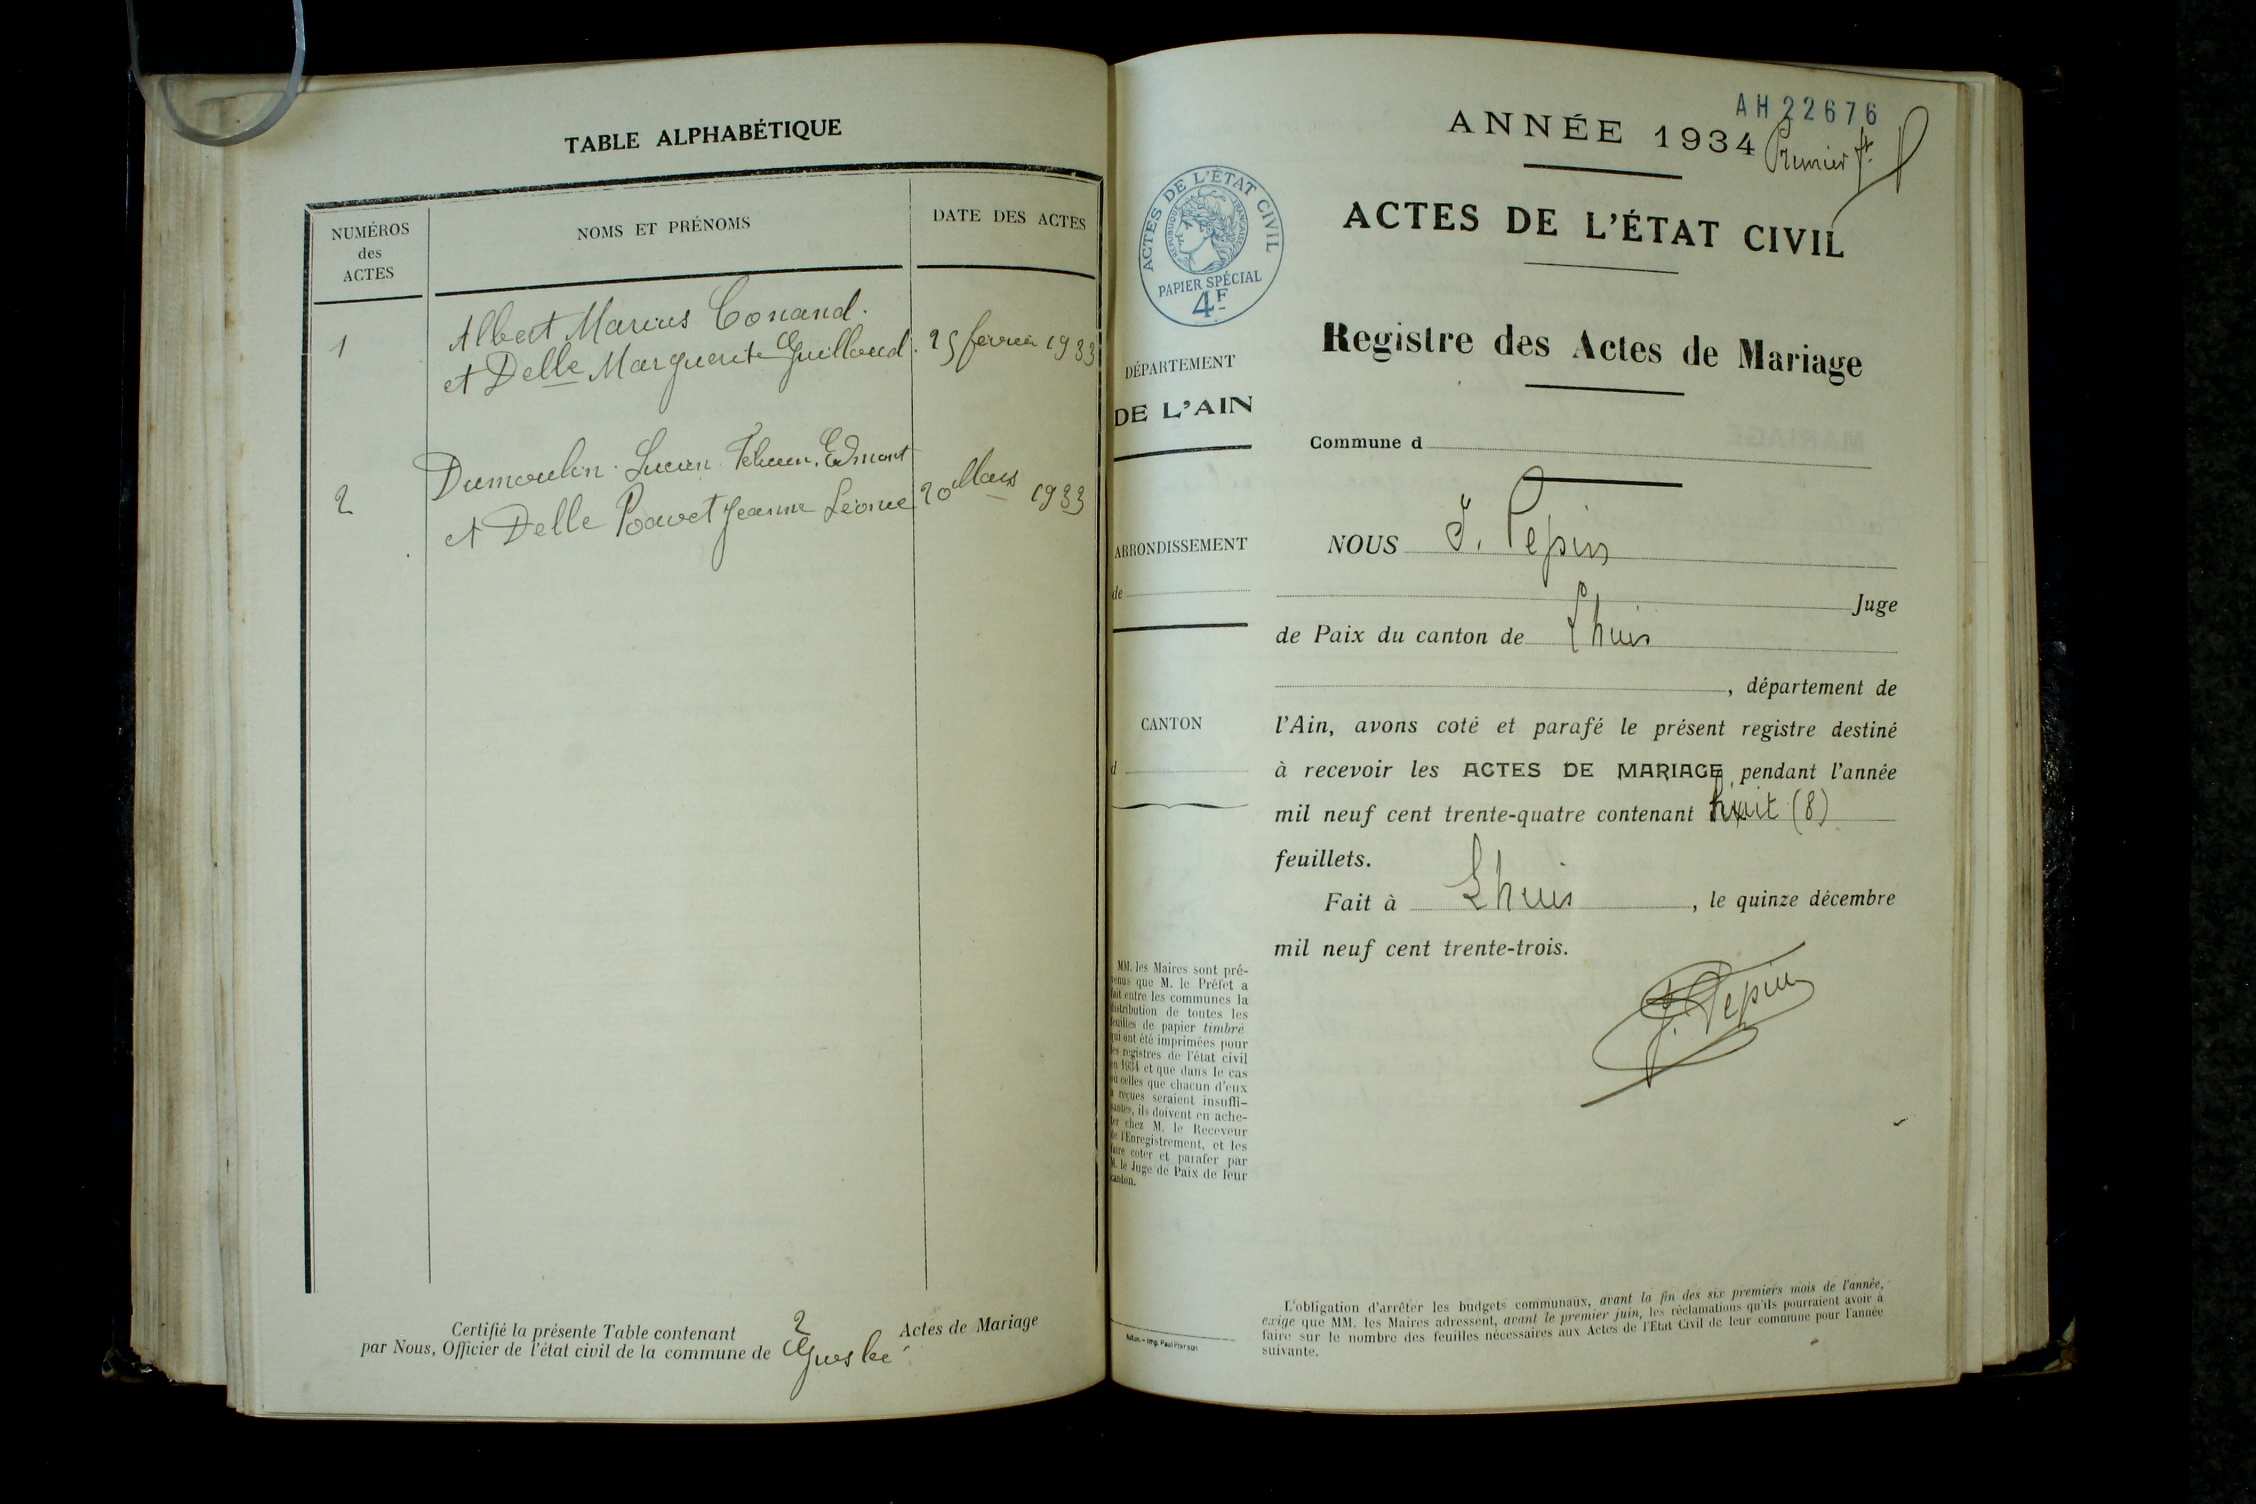 TABLE ALPHABÉTIQUE
NUMÉROS
des
ACTES
NOMS ET PRÉNOMS
DATE DES ACTES
1
Albert Marius Conand.
et Delle Marguerite Guilloud.
25 février 1933
2
Dumoulin Lucien Edmont
et Delle Jeanne Léonie
20 Mars 1933
Certifié la présente Table contenant 2 Actes de Mariage
par Nous, Officier de l'état civil de la commune de
AH 22676
ANNÉE 1934
Premier ft.
ACTES DE L'ÉTAT CIVIL
ACTES DE L'ÉTAT CIVIL
RÉPUBLIQUE FRANÇAISE
PAPIER SPÉCIAL
4F
Registre des Actes de Mariage
DÉPARTEMENT
DE L'AIN
Commune d
ARRONDISSEMENT
de
CANTON
d
NOUS J. Pepin
Juge
de Paix du canton de Lhuis
, département de
l'Ain, avons coté et parafé le présent registre destiné
à recevoir les ACTES DE MARIAGE pendant l'année
mil neuf cent trente-quatre contenant huit (8)
feuillets.
Fait à Lhuis, le quinze décembre
mil neuf cent trente-trois.
J. Pepin
MM. les Maires sont pré-
venus que M. le Préfet a
fait entre les communes la
distribution de toutes les
feuilles de papier timbré
qui ont été imprimées pour
les registres de l'état civil
en 1934 et que dans le cas
où celles que chacun d'eux
a reçues seraient insuffi-
santes, ils doivent en ache-
ter chez M. le Receveur
de l'Enregistrement, et les
faire coter et parafer par
M. le Juge de Paix de leur
canton.
Imp. Paul Pierson
L'obligation d'arrêter les budgets communaux, avant la fin des six premiers mois de l'année,
exige que MM. les Maires adressent, avant le premier juin, les réclamations qu'ils pourraient avoir à
faire sur le nombre des feuilles nécessaires aux Actes de l'État Civil de leur commune pour l'année
suivante.